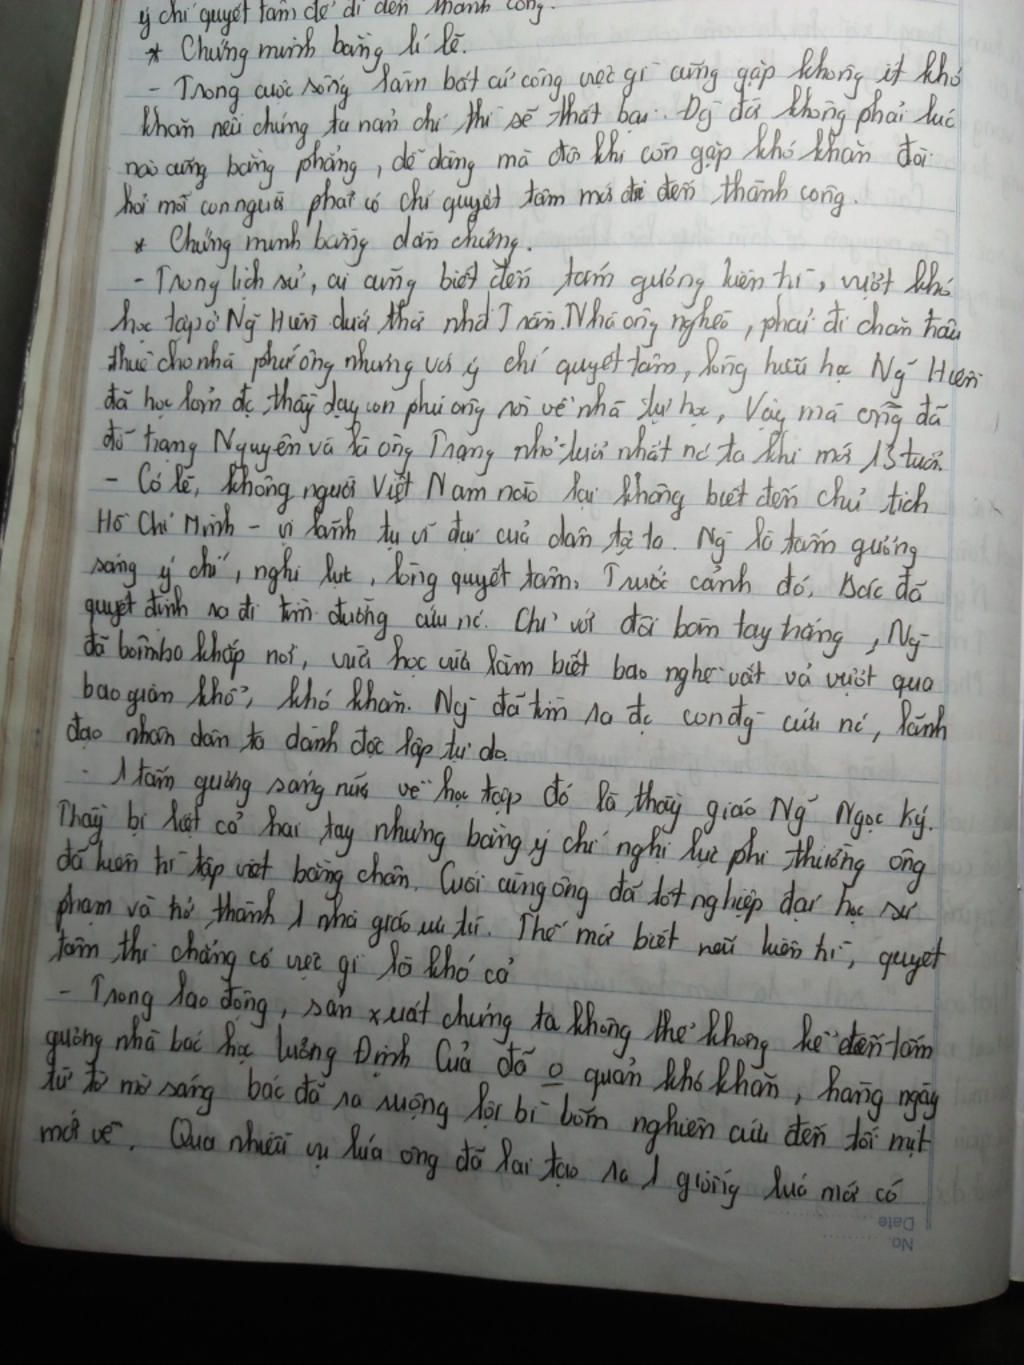 ý chí quyết tâm để đi đến thành công.
* Chứng minh bằng lí lẽ.
- Trong cuộc sống làm bất cứ công việc gì cũng gặp không ít khó
khăn nếu chúng ta nản chí thì sẽ thất bại. Đg đời không phải lúc
nào cũng bằng phẳng, dễ dàng mà đôi khi còn gặp khó khăn đòi
hỏi mỗi con người phải có chí quyết tâm mới đi đến thành công.
* Chứng minh bằng dẫn chứng.
- Trong lịch sử, ai cũng biết đến tấm gương kiên trì, vượt khó
học tập ở Ng Hiền dưới thời nhà Trần. Nhà ông nghèo, phải đi chăn trâu
thuê cho nhà phú ông nhưng với ý chí quyết tâm, lòng hiếu học Ng Hiền
đã học lỏm đc thầy dạy con phú ông rồi về nhà tự học, Vậy mà ông đã
đỗ trạng Nguyên và là ông Trạng nhỏ tuổi nhất nc ta khi mới 13 tuổi.
- Có lẽ, không người Việt Nam nào lại không biết đến chủ tịch
Hồ Chí Minh - vị lãnh tụ vĩ đại của dân tộc ta. Ng là tấm gương
sáng ý chí, nghị lực, lòng quyết tâm. Trước cảnh đó, Bác đã
quyết định ra đi tìm đường cứu nc. Chỉ với đôi bàn tay trắng, Ng
đã bôn ba khắp nơi, vừa học vừa làm biết bao nghề vất vả vượt qua
bao gian khổ, khó khăn. Ng đã tìm ra đc con đg cứu nc, lãnh
đạo nhân dân ta dành độc lập tự do.
- 1 tấm gương sáng nữa về học tập đó là thầy giáo Ng Ngọc Ký.
Thầy bị liệt cả hai tay nhưng bằng ý chí nghị lực phi thường ông
đã kiên trì tập viết bằng chân. Cuối cùng ông đã tốt nghiệp đại học sư
phạm và trở thành 1 nhà giáo ưu tú. Thế mới biết nếu kiên trì, quyết
tâm thì chẳng có việc gì là khó cả
- Trong lao động, sản xuất chúng ta không thể không kể đến tấm
gương nhà bác học Lương Định Của đã o quản khó khăn, hàng ngày
từ tờ mờ sáng bác đã ra ruộng lội bì bõm nghiên cứu đến tối mịt
mới về. Qua nhiều vụ lúa ông đã lai tạo ra 1 giống lúa mới có
Date
No.